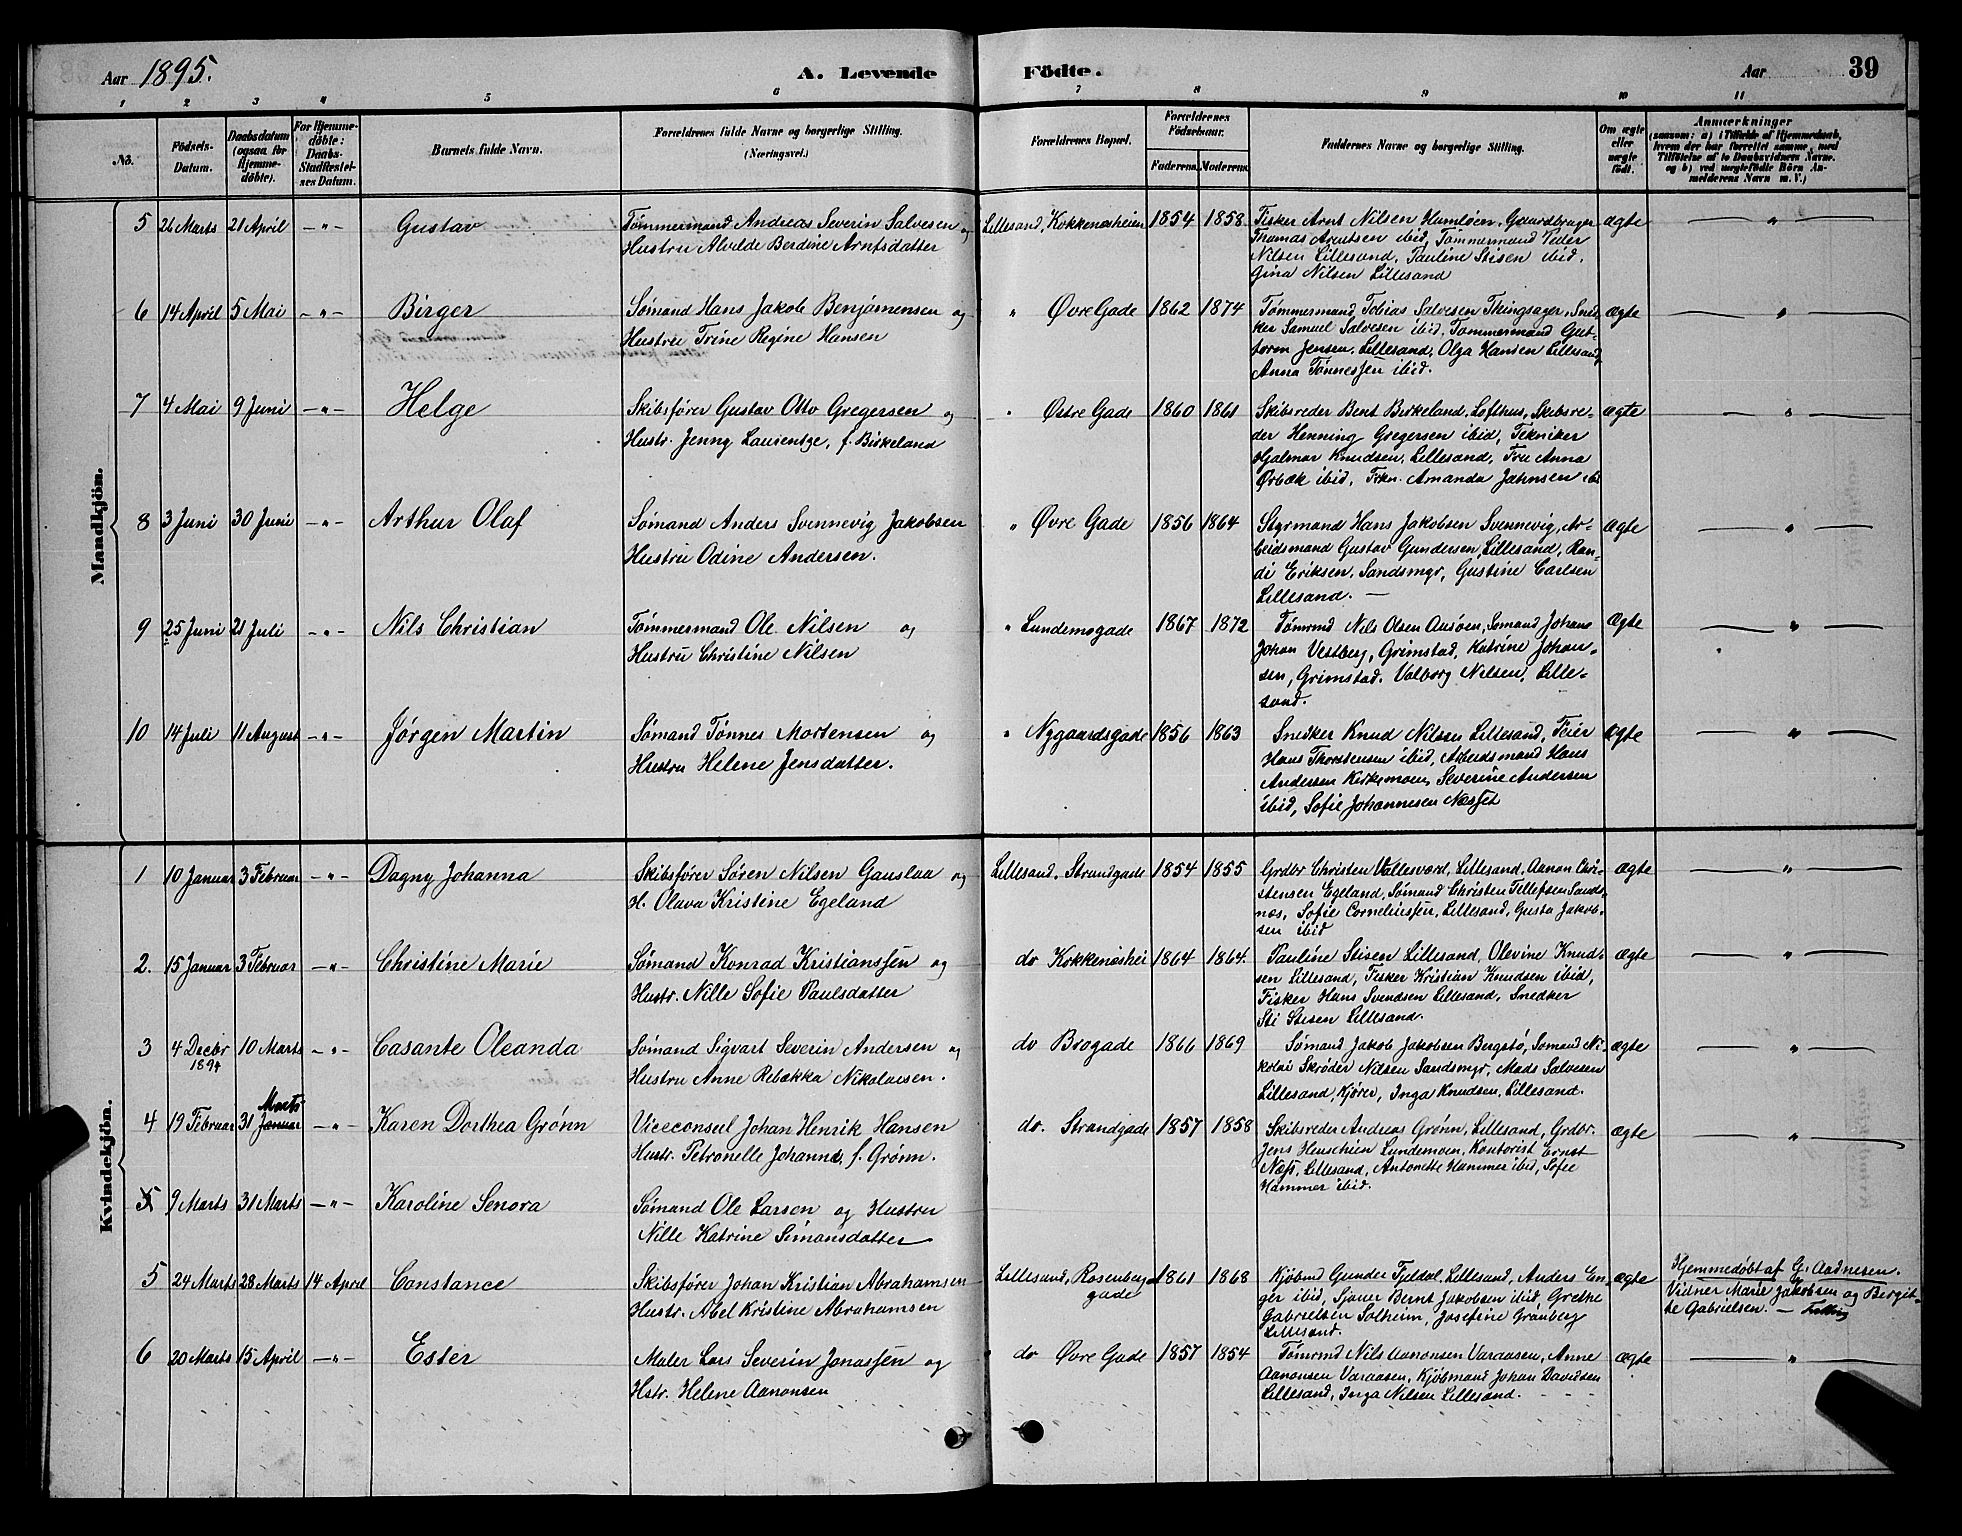 Aar 1895. A. Levende Födte. Aar 39
1 2 3 4 5 6 7 8 9 10 11
No.
Födsels-Datum.
Daabsdatum (ogsaa for Hjemme-döbte).
For Hjemme-döbte: Daabs-Stadfæstel-ses Datum.
Barnets fulde Navn.
Forældrenes fulde Navne og borgerlige Stilling.
(Næringsvei.)
Forældrenes Bopæl.
Forældrenes Födselsaar.
Faderens. Moderens.
Faddernes Navne og borgerlige Stilling.
Om ægte eller uægte födt.
Anmærkninger
(saasom: a) i Tilfælde af Hjemmedaab, hvem der har forrettet samme, med Tilföielse af to Daabsvidners Navne, og b) ved uægtefödte Börn An-melderens Navn m. V.)
Mandkjön.
5 26 Marts 21 April -"- Gustav Tømmermand Andreas Severin Salvesen og Lillesand, Kokkenæsheien 1854 1858 Fisker Arnt Nilsen Humløen, Gaardbruger ægte "
Hustru Alvilde Berdine Arntsdatter Thomas Arntsen ibid, Tømmermand Peder
Nilsen Lillesand, Pauline Stisen ibid,
Gina Nilsen Lillesand
6 14 April 5 Mai -"- Birger Sømand Hans Jakob Benjamensen og " Øvre Gade 1862 1874 Tømmermand Tobias Salvesen Thingsager, Sned- ægte "
Hustru Trine Regine Hansen ker Samuel Salvesen ibid, Tømmermand Gut-
torm Jensen, Lillesand, Olga Hansen Lillesand,
Anna Tønnessen ibid.
7 4 Mai 9 Juni -"- Helge Skibsfører Gustav Otto Gregersen og " Østre Gade 1860 1861 Skibsreder Bent Birkeland, Lofthus, Skibsre- ægte "
Hustr. Jenny Laurentze, f. Birkeland der Henning Gregersen ibid, Tekniker
Hjalmar Knudsen, Lillesand, Fru Anna
Ørbæk ibid, Frkn. Amanda Jahnsen ibi
8 3 Juni 30 Juni -"- Arthur Olaf Sømand Anders Svennevig Jakobsen " Øvre Gade 1856 1864 Styrmand Hans Jakobsen Svennevig, Ar- ægte "
Hustru Odine Andersen. beidsmand Gustav Gundersen, Lillesand, Ran-
di Eriksen, Sandsmyr, Gustine Carlsen
Lillesand. —
9 25 Juni 21 Juli -"- Nils Christian Tømmermand Ole Nilsen og " Lundemogade 1867 1872 Tømrmd Nils Olsen Ausøen, Sømand Johans ægte "
Hustru Christine Nilsen Johan Vestberg, Grimstad, Katrine Johan-
sen, Grimstad. Valborg Nilsen, Lille-
sand.
10 14 Juli 11 August -"- Jørgen Martin Sømand Tønnes Mortensen og " Nygaardsgade 1856 1863 Snedker Knud Nilsen Lillesand, Feier ægte "
Hustru Helene Jensdatter. Hans Thorstensen ibid, Arbeidsmand Hans
Andersen Kirkemoen, Severine Andersen
ibid, Sofie Johannesen Næsset
Kvindekjön.
1 10 Januar 3 Februar -"- Dagny Johanna Skibsfører Søren Nilsen Gauslaa og Lillesand. Strandgade 1854 1855 Grdbr Christen Vallesværd, Lillesand, Aanon Chri- ægte "
H. Olava Kristine Egeland stensen Egeland, Sømand Christen Tellefsen Sands-
næs, Sofie Corneliussen, Lillesand, Gusta Jakob-
sen ibid
2. 15 Januar 3 Februar -"- Christine Marie Sømand Konrad Kristianssen og do Kokkenæshei 1864 1864. Pauline Stisen Lillesand, Olevine Knud- ægte "
Hustr. Nille Sofie Paulsdatter sen Lillesand, Fisker Kristian Knudsen ibid,
Fisker Hans Svendsen Lillesand, Snedker
Sti Stisen Lillesand.
3 4 Decbr 10 Marts -"- Casante Oleanda Sømand Sigvart Severin Andersen og do Brogade 1866 1869 Sømand Jakob Jakobsen Bergstø, Sømand Ni- ægte "
1894 Hustru Anne Rebækka Nikolaisen. kolai Skrøder Nilsen Sandsmyr, Mads Salvesen
Lillesand, Kjører, Inga Knudsen, Lillesand.
Marts
4 19 Februar 31 Januar -"- Karen Dorthea Grønn Viceconsul Johan Henrik Hansen do. Strandgade 1857 1858 Skibsreder Andreas Grønn, Lillesand, Grdbr. ægte "
Hustr. Petronelle Johanne, f. Grønn. Jens Henschien Lundemoen, Kontorist Ernst
Næss, Lillesand, Antonette Hammer ibid, Sofie
Hammer ibid.
5 9 Marts 31 Marts -"- Karoline Senora Sømand Ole Larsen og Hustru
Nille Katrine Simonsdatter
5 24 Marts 28 Marts 14 April Constance Skibsfører Johan Kristian Abrahamsen Lillesand, Rosenberg 1861 1868 Kjøbmd Gunder Fjeldal, Lillesand, Anders En- ægte Hjemmedøbt af G. Aadnesen.
Hustr. Abel Kristine Abrahamsen gade ger ibid, Sjauer Bernt Jakobsen ibid, Grethe Vidner Marie Jakobsen og Bergit-
Gabrielsen Solheim, Josefine Grønberg te Gabrielsen. —
Lillesand.
6 20 Marts 15 April -"- Ester Maler Lars Severin Jonassen og do Øvre Gade 1857 1854 Tømrmd Nils Aanonsen Varaasen, Anne ægte "
Hstr. Helene Aanonsen Aanonsen Varaasen, Kjøbmand Johan Davidsen
Lillesand, Inga Nilsen Lillesand.